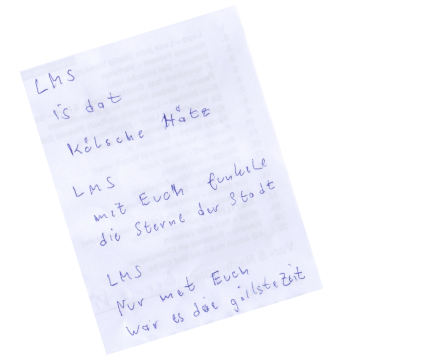 LMS
is dat
Kölsche Hätz
LMS
met Euch funkele
die Sterne der Stadt
LMS
Nur met Euch
wär es die gillste Zeit